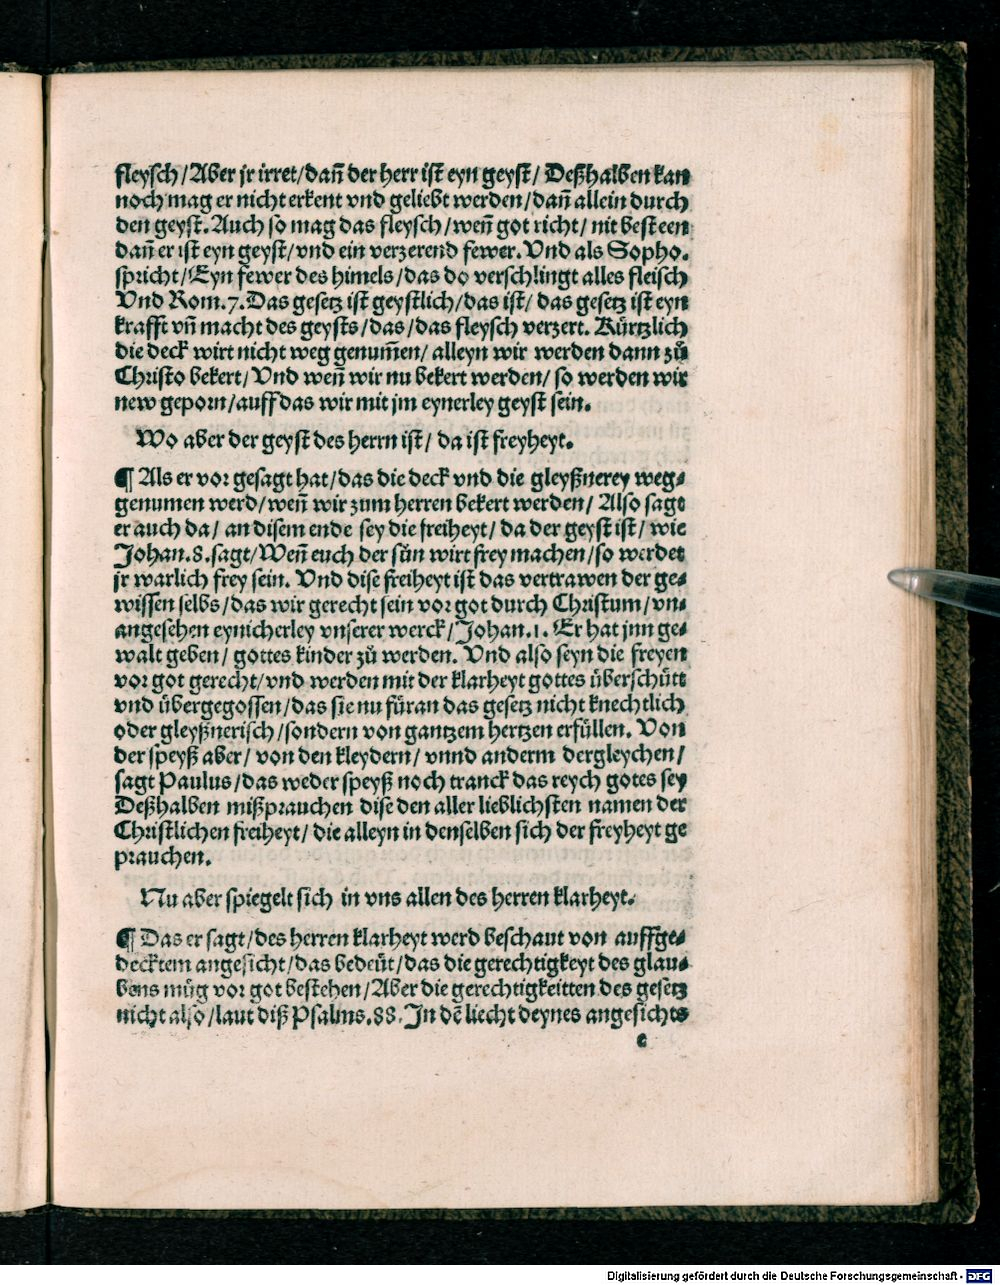 fleysch/Aber jr irret/dañ der herr ist eyn geyst/ Deßhalben kan
noch mag er nicht erkent vnd geliebt werden/dañ allein durch
den geyst. Auch so mag das fleysch/weñ got richt/ nit besteen
dañ er ist eyn geyst/vnd ein verzerend fewer. Vnd als Sopho.
spricht/Eyn fewer des himels/das do verschlingt alles fleisch
Vnd Rom.7. Das gesetz ist geystlich/das ist/ das gesetz ist eyn
krafft vñ macht des geysts/das/das fleysch verzert. Kürtzlich
die deck wirt nicht weg genum̄en/ alleyn wir werden dann zů
Christo bekert/ Vnd weñ wir nu bekert werden/ so werden wir
new geporn/auff das wir mit jm eynerley geyst sein.
Wo aber der geyst des herrn ist/ da ist freyheyt.
¶ Als er vor gesagt hat/das die deck vnd die gleyßnerey weg⸗
genumen werd/weñ wir zum herren bekert werden/ Also sagt
er auch da/ an disem ende sey die freiheyt/ da der geyst ist/ wie
Johan.8.sagt/Weñ euch der sůn wirt frey machen/so werdet
jr warlich frey sein. Vnd dise freiheyt ist das vertrawen der ge⸗
wissen selbs/das wir gerecht sein vor got durch Christum/vn⸗
angesehen eynicherley vnserer werck/Johan.1. Er hat jnn ge⸗
walt geben/ gottes kinder zů werden. Vnd also seyn die freyen
vor got gerecht/vnd werden mit der klarheyt gottes überschüt
vnd übergegossen/das sie nu füran das gesetz nicht knechtlich
oder gleyßnerisch/sondern von gantzem hertzen erfüllen. Von
der speyß aber/ von den kleydern/ vnnd anderm dergleychen/
sagt Paulus/das weder speyß noch tranck das reych gotes sey
Deßhalben mißprauchen dise den aller lieblichsten namen der
Christlichen freiheyt/ die alleyn in denselben sich der freyheyt ge
prauchen.
Nu aber spiegelt sich in vns allen des herren klarheyt.
¶ Das er sagt/des herren klarheyt werd beschaut von auffge⸗
decktem angesicht/das bedeüt/das die gerechtigkeyt des glau⸗
bens müg vor got bestehen/Aber die gerechtigkeitten des gesetz
nicht also/laut diß Psalms.88. In dē liecht deynes angesichts
c
Digitalisierung gefördert durch die Deutsche Forschungsgemeinschaft - DFG